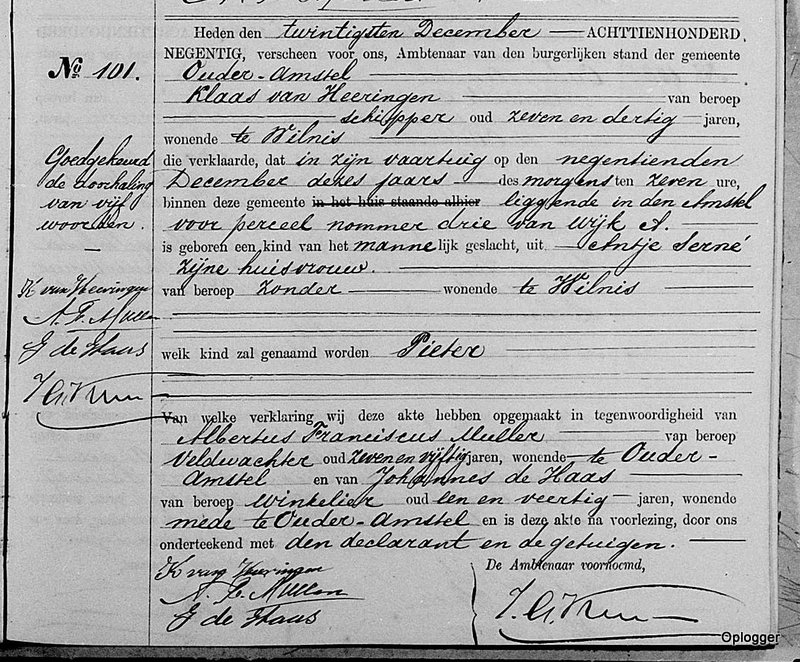 Heden den twintigsten December ACHTTIENHONDERD
NEGENTIG, verscheen voor ons, Ambtenaar van den burgerlijken stand der gemeente
Ouder-Amstel
Klaas van Heeringen van beroep
schipper oud zeven en dertig jaren,
wonende te Wilnis
die verklaarde, dat in zijn vaartuig op den negentienden
December dezes jaars des morgens ten zeven ure,
binnen deze gemeente in het huis staande alhier liggende in den Amstel
voor perceel nommer drie van wijk A.
is geboren een kind van het mannelijk geslacht, uit Antje Serné
zijne huisvrouw.
van beroep zonder wonende te Wilnis
welk kind zal genaamd worden Pieter
Van welke verklaring wij deze akte hebben opgemaakt in tegenwoordigheid van
Albertus Franciscus Muller van beroep
Veldwachter oud zeven en vijftig jaren, wonende te Ouder-
Amstel en van Johannes de Haas
van beroep winkelier oud een en veertig jaren, wonende
mede te Ouder-Amstel en is deze akte na voorlezing, door ons
onderteekend met den declarant en de getuigen.
K van Heeringen
A. F. Muller
J de Haas
De Ambtenaar voornoemd,
No. 101.
Goedgekeurd
de doorhaling
van vijf
woorden.
K van Heeringen
A. F. Muller
J de Haas
Oplogger